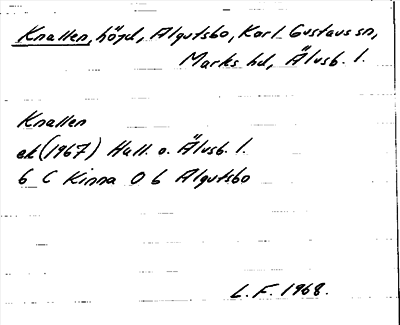 Knallen, höjd, Algutsbo, Karl Gustavs sn,
Marks hd, Älvsb. l.
Knallen
ek (1967) Hall. o. Älvsb. l.
6 C Kinna 0 b Algutsbo
L. F. 1968.